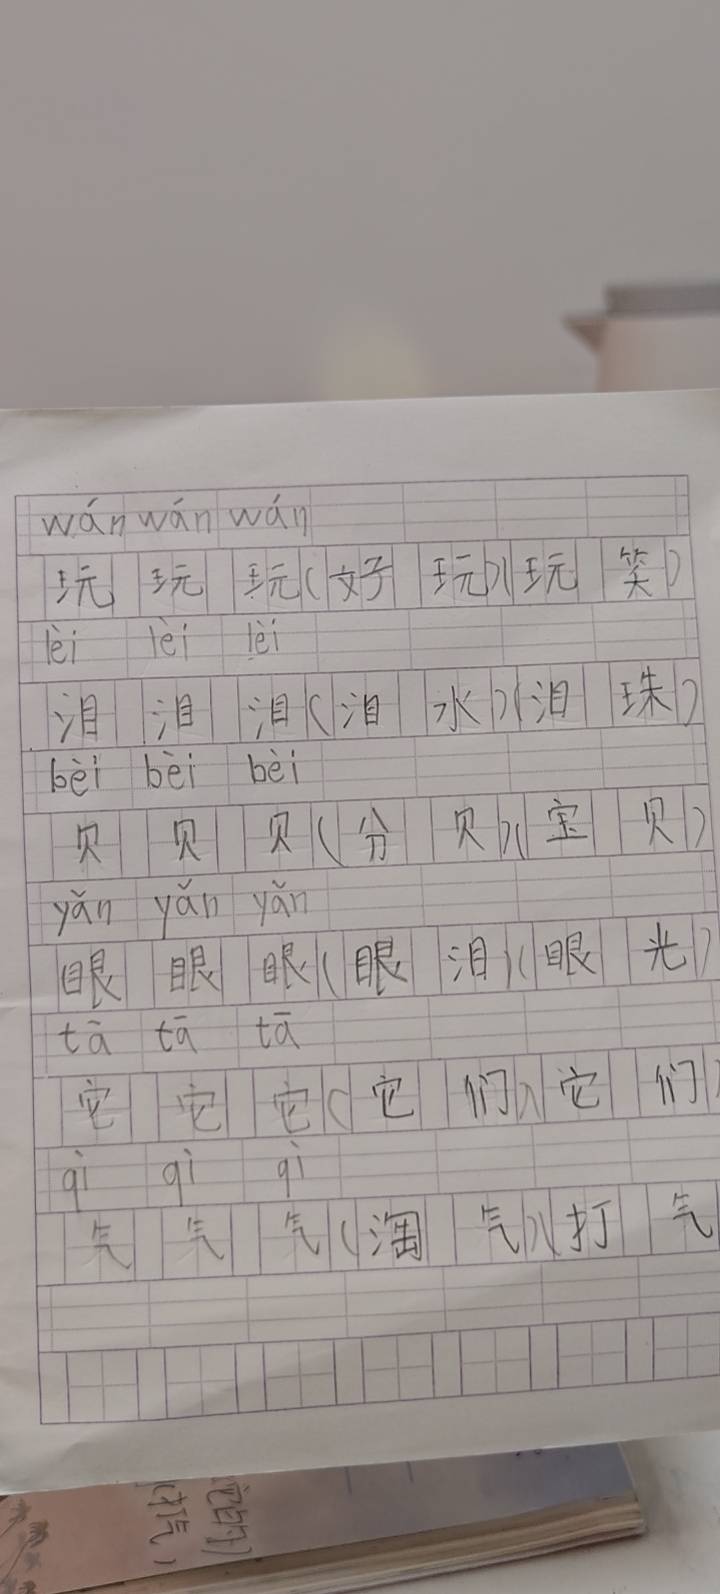 wán wán wán
玩 玩 玩(好 玩)(玩 笑)
lèi lèi lèi
泪 泪 泪(泪 水)(泪 珠)
bèi bèi bèi
贝 贝 贝(分 贝)(宝 贝)
yǎn yǎn yǎn
眼 眼 眼(眼 泪)(眼 光)
tā tā tā
它 它 它(它 们)(它 们)
qì qì qì
气 气 气(淘 气)(打 气